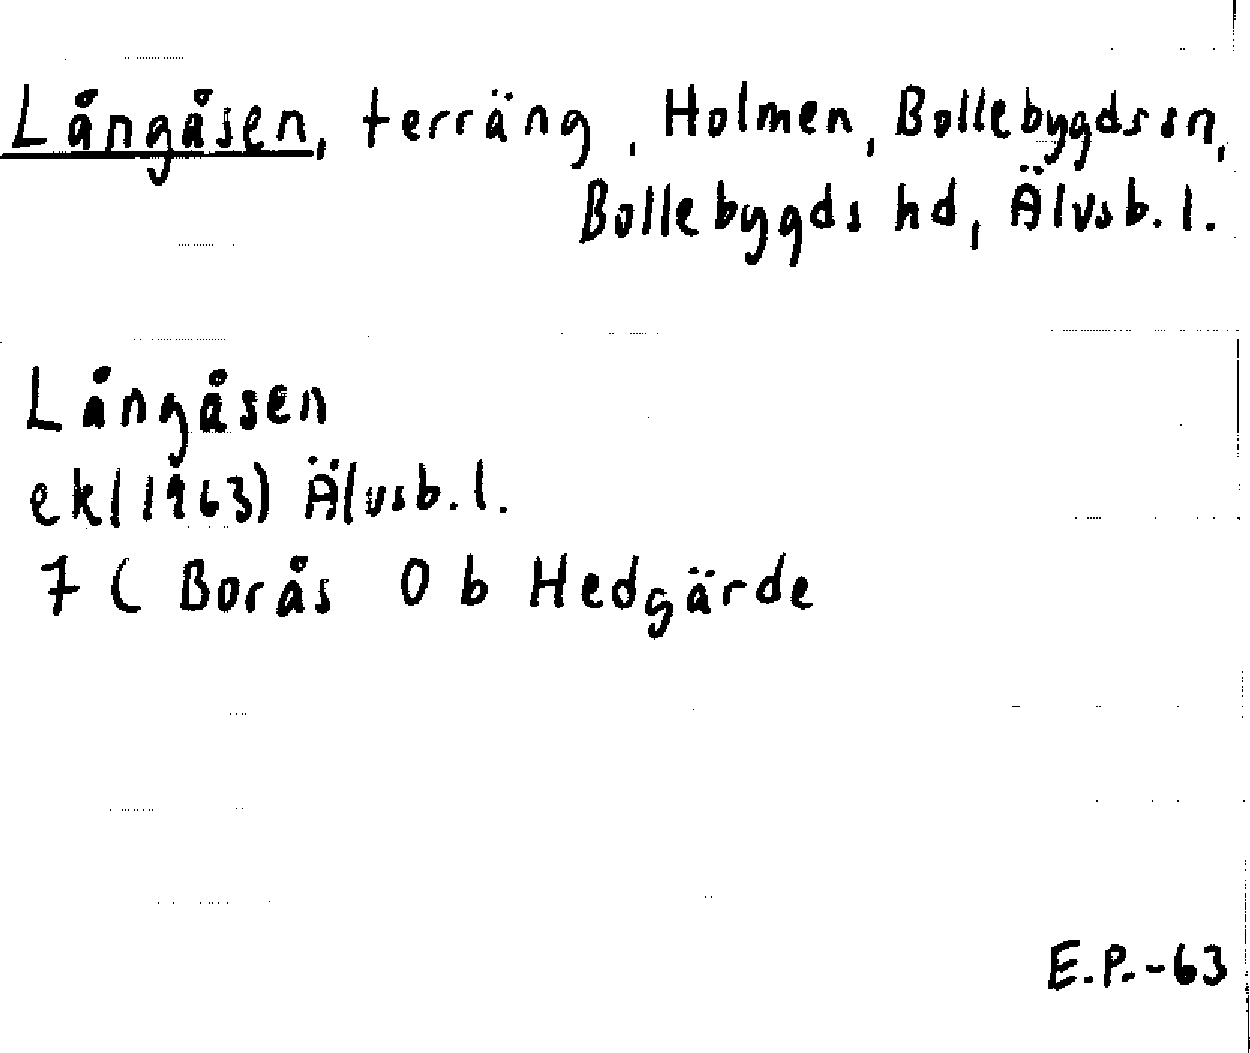 Långåsen, terräng, Holmen, Bollebygds sn,
Bollebygds hd, Älvsb. l.
Långåsen
ek(1963) Älvsb. l.
7C Borås 0 b Hedgärde
E.P.-63